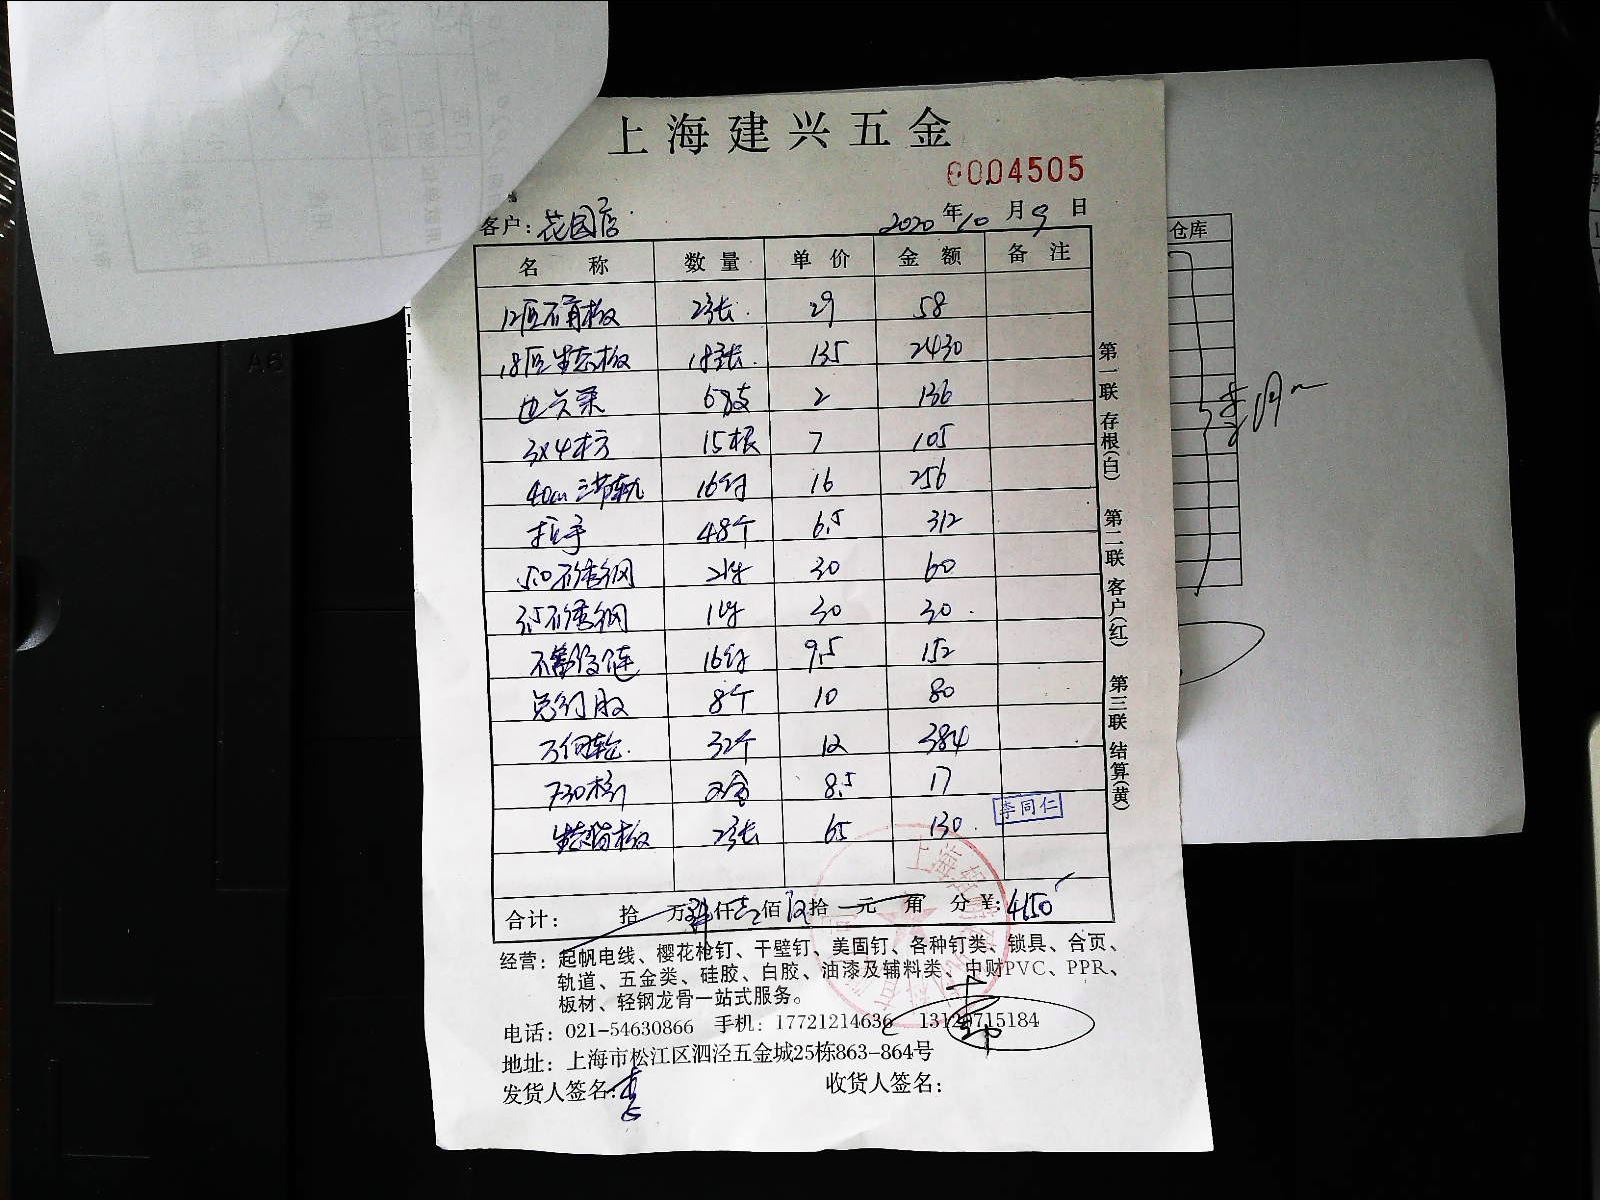 上海建兴五金
0004505
客户：花园店 2020年10月9日
名称 数量 单价 金额 备注
12厘不背板 2张 29 58
18厘生态板 18张 135 2430
68支 2 136
3x4木方 15根 7 105
40cm三节轨 16付 16 256
拉手 48个 6.5 312
5.0不锈钢 2件 30 60
3.5不锈钢 1件 30 30
16付 9.5 152
8个 10 80
万向轮 32个 12 384
2盒 8.5 17
生态背板 2张 65 130
李同仁
合计： 拾 万肆仟壹佰伍拾 元 角 分 ¥:4150
经营：起帆电线、樱花枪钉、干壁钉、美固钉、各种钉类、锁具、合页、
轨道、五金类、硅胶、白胶、油漆及辅料类、中财PVC、PPR、
板材、轻钢龙骨一站式服务。
电话：021-54630866 手机：17721214636 13120715184
地址：上海市松江区泗泾五金城25栋863-864号
发货人签名：李 收货人签名：
第一联 存根(白) 第二联 客户(红) 第三联 结算(黄)
仓库
A6